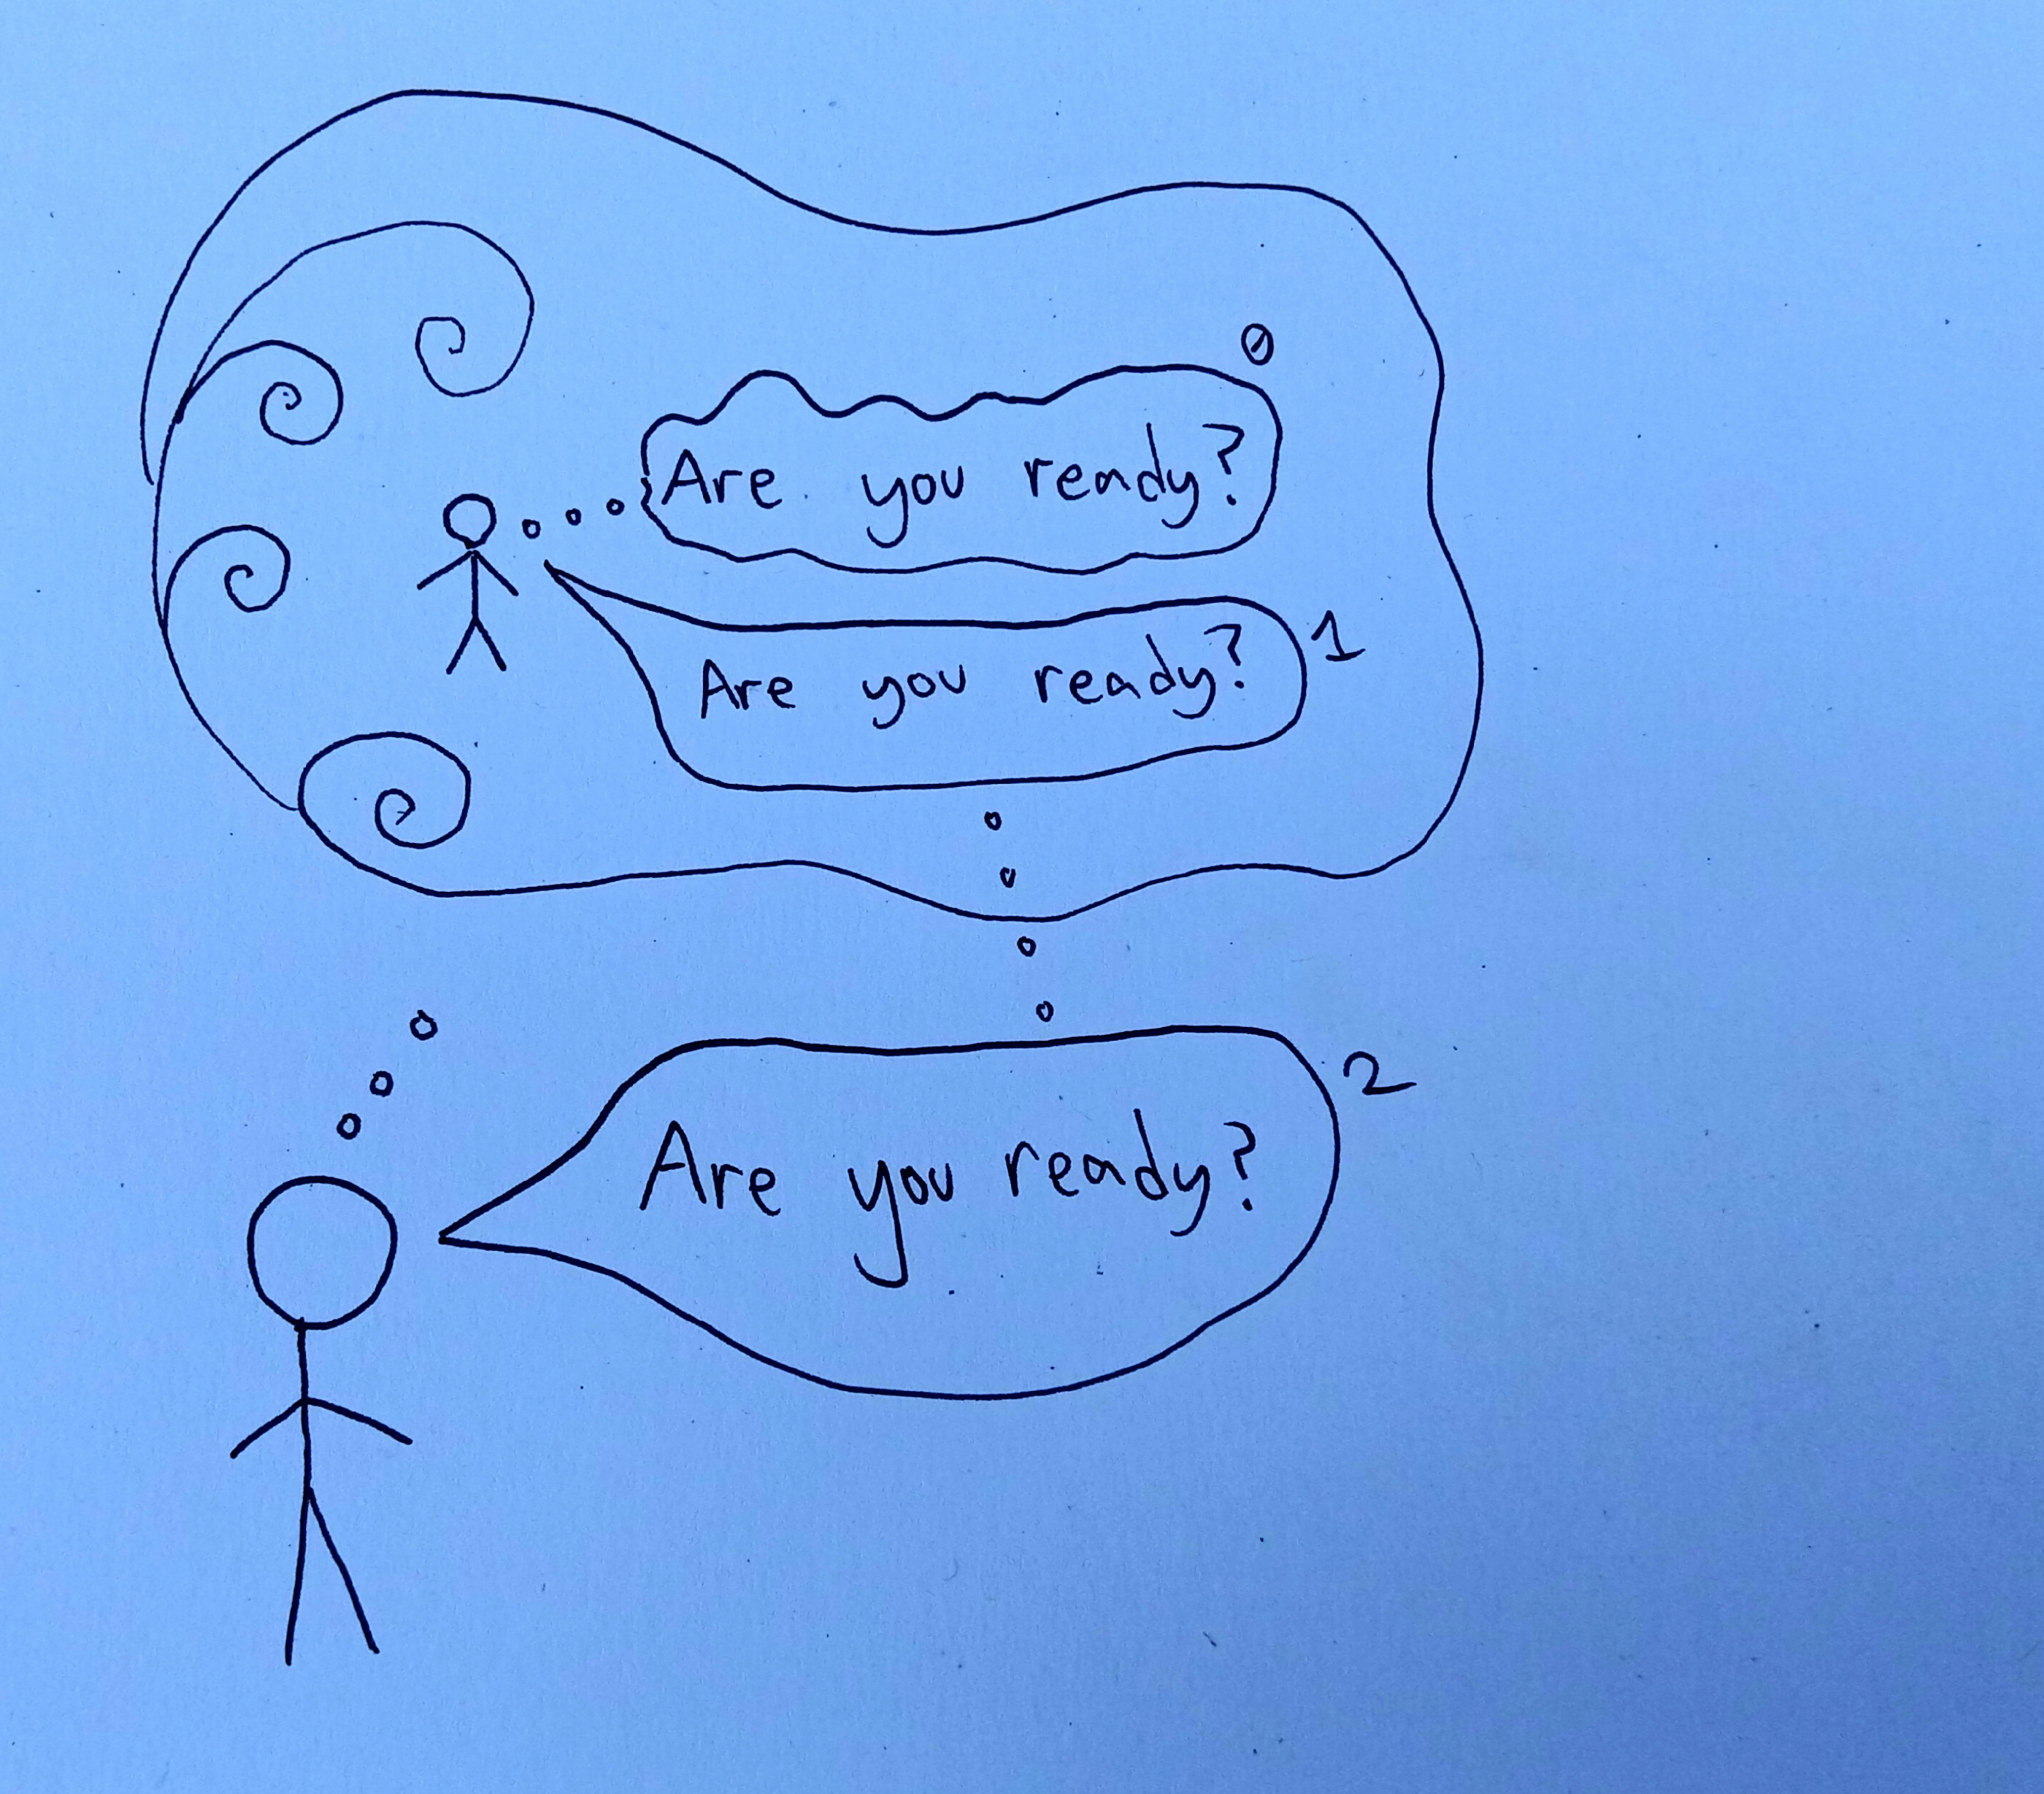 0
Are you ready?
Are you ready? 1
2
Are you ready?